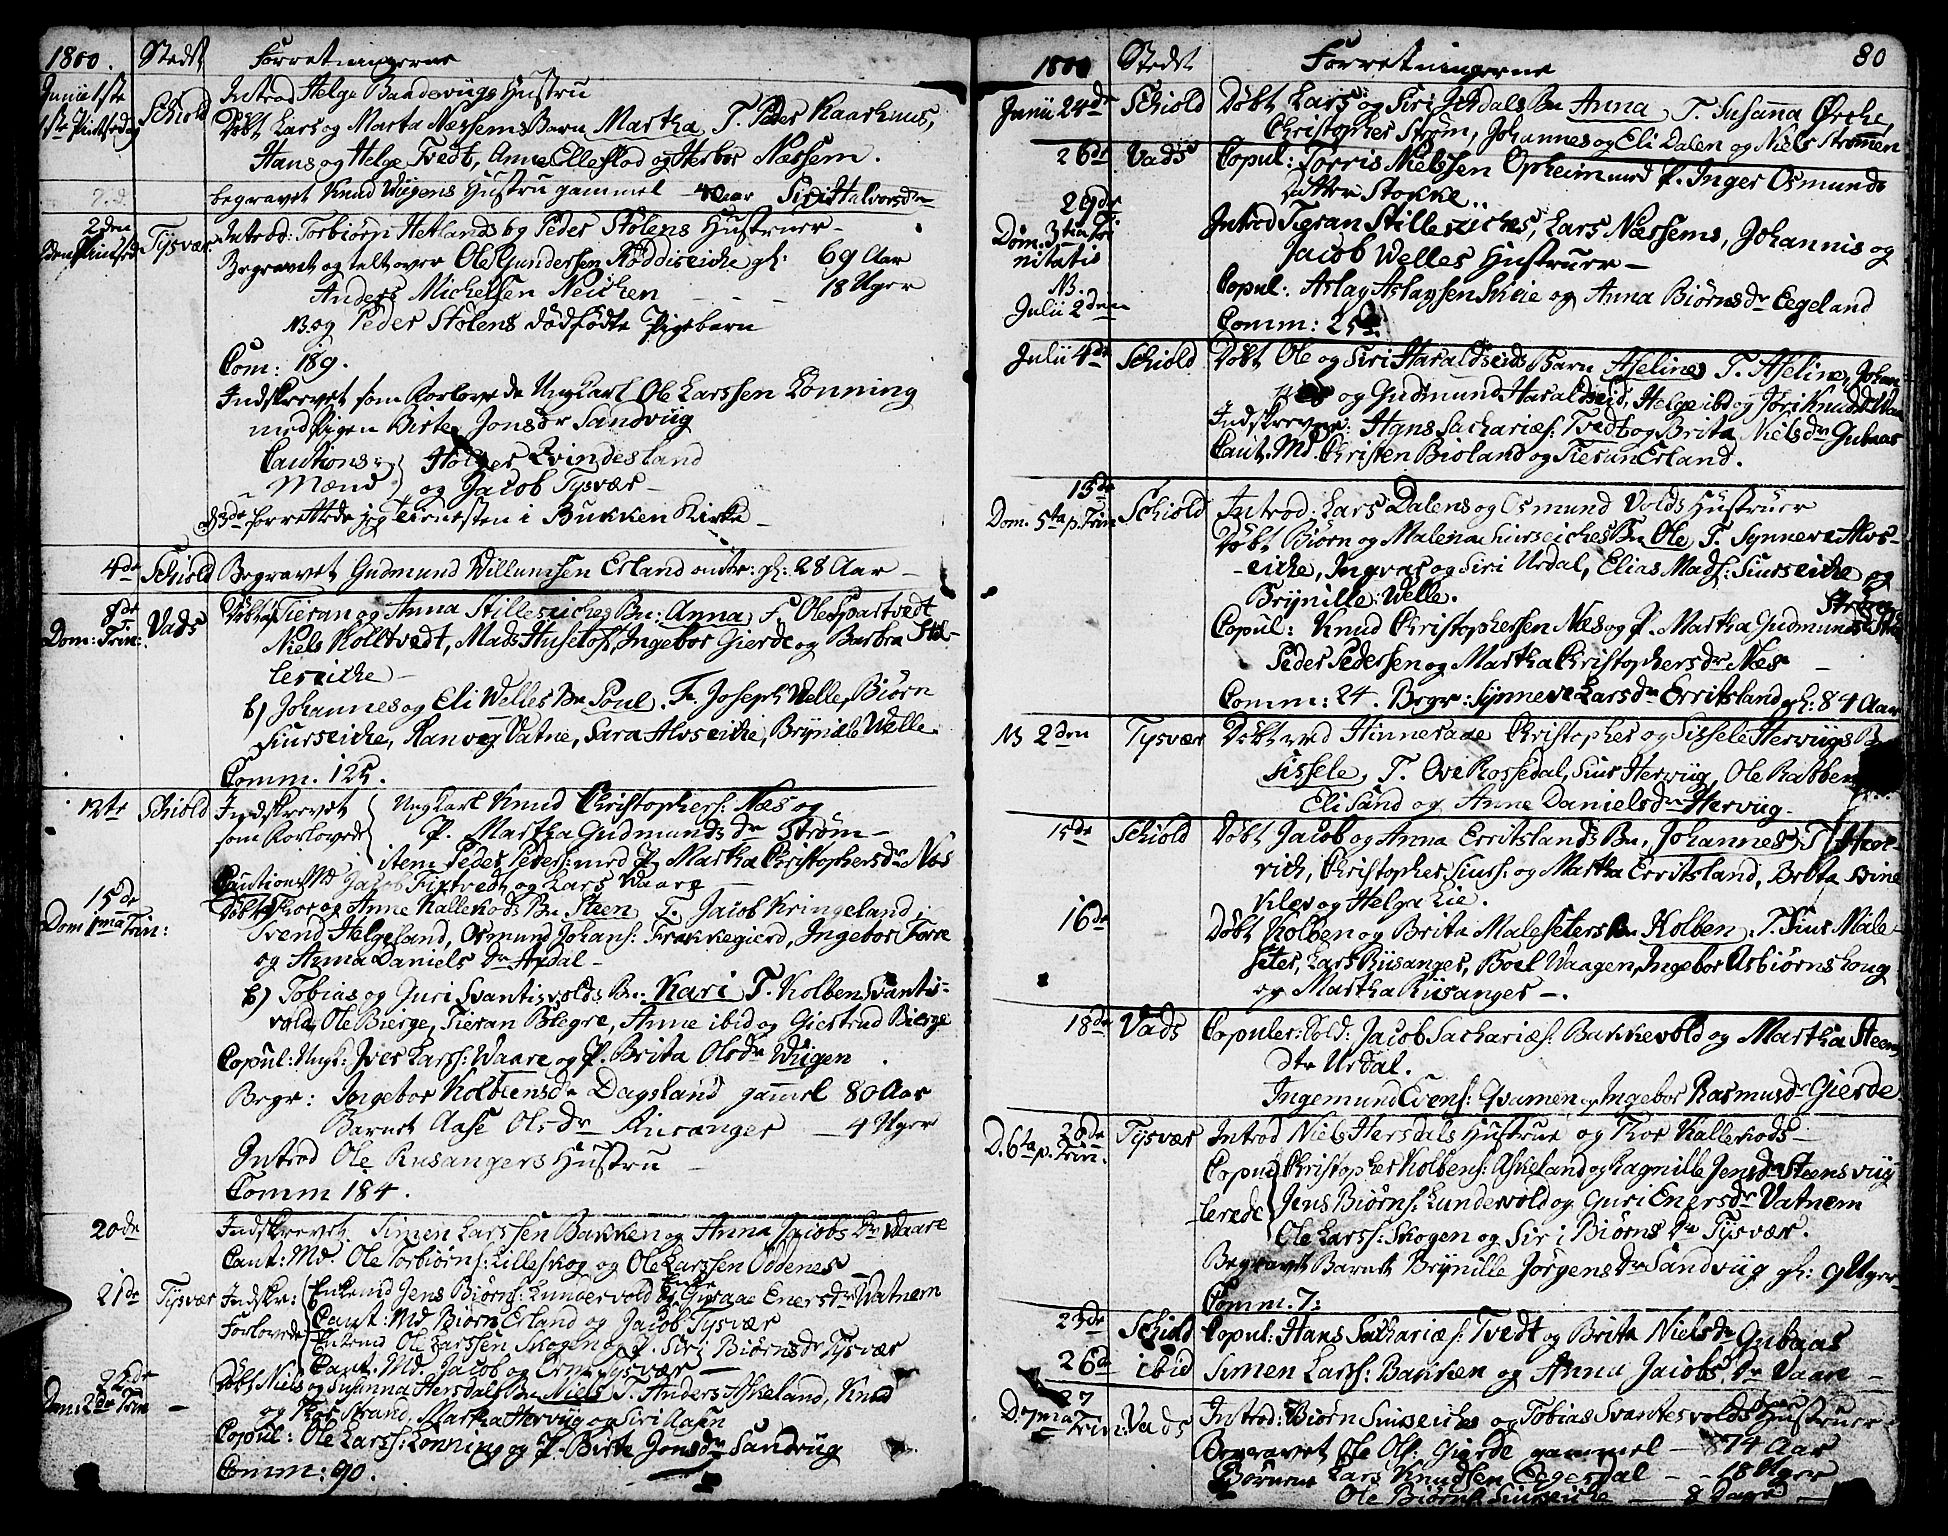 1800. Stedet Forretningerne
Junii 1ste Introd Helge Bandeviigs Hustru
1ste Pintsedag Schiold Døbt Lars og Marta Næssems Barn Martha, T. Peder Kaarhuus,
Hans og Helge Tvedt, Anne Ellestad og Herbor Næssem.
begravet Knud Wiigens Hustru gammel Siri Halvorsdr
2den Tysvær Introd: Torbiørn Hetlands og Peder Stølens Hustruer
Begravet og talt over Ole Gundersen Røddiseiche gl: 69 Aar
Anders Michelsen Neichen 18 Uger
og Peder Stølens dødfødte Pigebarn
Com: 189.
Indskrevet som Forlovede Ungkarl Ole Larssen Lønning
med Pigen Birte Jonsdr Sandviig
Cautions- Holger Qvindesland
Mænd og Jacob Tysvær
3de forrettede jeg tienesten i Bukken Kirke
4de Schiold Begravet Gudmund Villumsen Erland gl: 28 Aar
8de Vads Døbt a) Tieran og Anna Stilleseiches Bn: Anna F Ole Svartvedt
Dom: Trin. Niels Kolltvedt, Mads Husetoft, Ingebor Gierde og Barbra Stil-
leseiche
b) Johannes og Eli Welles Bn Poul. F. Joseph Welle, Biørn
Siurseiche, Ranveg Vatne, Sara Alvseiche, Brynild Welle.
Comm. 125.
12te Schiold Indskrevet Ungkarl Knud Christophers: Næs og
som Forlovede P. Martha Gudmunds dr Strøm
item Peder Peders: med P. Martha Christophersdr Næs
Cautions Md Jacob Tixtvedt og Lars Vaare
15de Døbt a) Thor og Anne Kallekods Bn Steen T. Jacob Kringeland,
Dom 1ma Trin: Svend Helgeland, Osmund Johans: Frakkegierd, Ingebor Torre
og Anna Daniels dr Aрdal
b) Tobias og Guri Svantisvolds Bn: Kari T. Kolben Svantis-
vold, Ole Bierge, Tieran Blegre, Anne ibid og Giertrud Bierge
Copul: Ungk: Iver Larss: Waare og P. Brita Olsdr Wiigen
Begr: Ingebor Kolbiensdr Dagsland gammel 80 Aar
Barnet Aase Olsdr Riusanger 4 Uger
Introd Ole Rusangers Hustru
Comm 184.
20de Indskrevet Simen Larssen Bakken og Anna Jacobs Dr Vaare
Caut: Md. Ole Torbiørns: Lilleskog og Ole Larssen Oddenes
21de Tysvær Indskr: Enkemd Jens Biørns: Lundevold og Enersdr Vatnem
Forlovede Caut: Md Biørn Erland og Jacob Tysvær
Enkemd Ole Larssen Skogen og P. Siri Biørnsdr Tysvær
Caut: Md. Jacob og Orm Tysvær
22de Døbt Niels og Susanna Hersdals Bn Niels T. Anders Askeland, Knud
Dom: 2de Trin og Thor Strand, Martha Herviig og Siri Aasen
Copul: Ole Larss: Lønning og P. Birte Jonsdr Sandviig
Comm: 90.
1800 Stedet Forretningerne 80
Junii 24de Schiold Døbt Lars og Siri Jordals Bn Anna T. Susanna Ørche,
Christopher Strøm, Johannes og Eli Dalen og Niels Strømen
26de Vads Copul: Torris Nielssen Opheim med P. Inger Osmunds
datter Stokke.
29de Introd Tieran Stilleseiches, Lars Næssems, Johannis og
Dom. 3tia Tri- Jacob Welles Hustruer
nitatis
NB. Copul: Aslag Aslagsen Skeie og Anna Biørnsdr Eegeland
Julii 2den Comm: 25
Julii 4de Schiold Døbt Ole og Siri Haraldseids Barn Aseline T. Aseline, Johan-
nes og Gudmund Haraldseid, Helge ibd og Siri Knudsdr
Indskrevne: Hans Sachariæs: Tvedt og Brita Nielsdr Gubaas
Caut. Md. Christen Bioland og Tieran Erland.
13de Schiold Introd: Lars Dalens og Osmund Volds Hustruer
Dom. 5ta p. Trin Døbt Biørn og Malena Siurseiches Bn Ole T. Synneva Alvs-
eiche, Ingvar og Siri Urdal, Elias Mads: Siurseiche og
Brynille Welle.
Copul: Knud Christophersen Næs og P. Martha Gudmundsdr Strøm
Peder Pedersen og Martha Christophersdr Næs
Comm: 24. Begr: Synneve Larsdr Erritsland gl: 84 Aar
NB 2den Tysvær Døbt ved Hinneraae Christopher og Sissele Herviigs B
Sissele, T. Ove Rossedal, Siur Herviig, Ole Rabben
Eli Sand og Anne Danielsdr Herviig.
15de Schiold Døbt Jacob og Anna Erritslands Bn, Johannes, T. Hov-
rich, Christopher Siurs: og Martha Erritsland, Brita Stine
Vilev og Helga Lie.
16de Døbt Kolben og Brita Maleseters Bn Kolben, T. Siur Male-
seter, Lars Riisanger, Boel Waagen, Ingebor Asbiørnshoug
og Martha Riisanger.
18de Vads Copuler: Sold: Jacob Sachariæs: Bakkevold og Martha Steens
dtr Urdal.
Ingemund Evens: Qvamen og Ingebor Rasmusdr Gierde
20de Tysvær Introd Niels Hersdals Hustrue og Thor Kallekods
D. 6ta p. Trin. Copu- Christopher Kolbens: Askeland og Ragnille Jensdr Steensviig
lerede Jens Biørns: Lundevold og Guri Enersdr Vatnem
Ole Larss: Skogen og Siri Biørns dr Tysvær.
Begravet Barnet Brynille Jørgensdr Sandviig gl: 9 Uger
Comm. 7:
23de Schiold Copul: Hans Sachariæs: Tvedt og Brita Nielsdr Gubaas
26de ibid Simen Larss: Bakken og Anna Jacobs dr Vaare
27 Vads Introd: Biørn Siurseiches og Tobias Svantesvolds Hustruer
D. 7ma Trin: Begravet Ole Ols: Gierde gammel 74 Aar
Børnene Lars Knudsen Eegesdal 18 Uger
Ole Biørns: Siurseiche 8 Dage